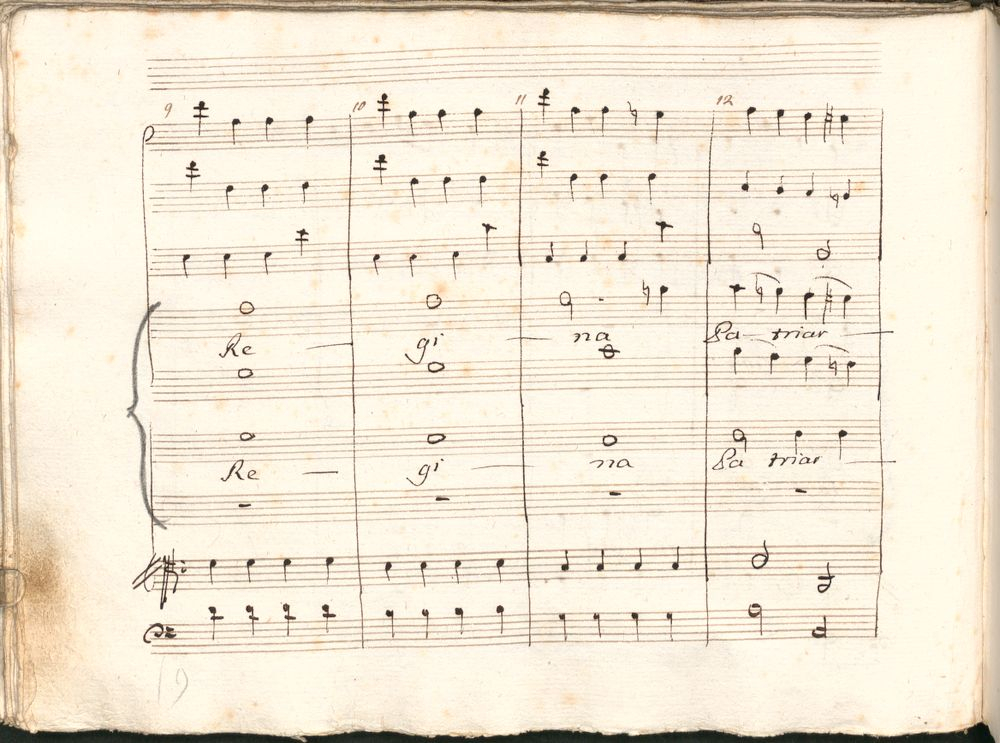 9 10 11 12
Re — gi — na Pa — triar —
Re — gi — na Pa triar —
19